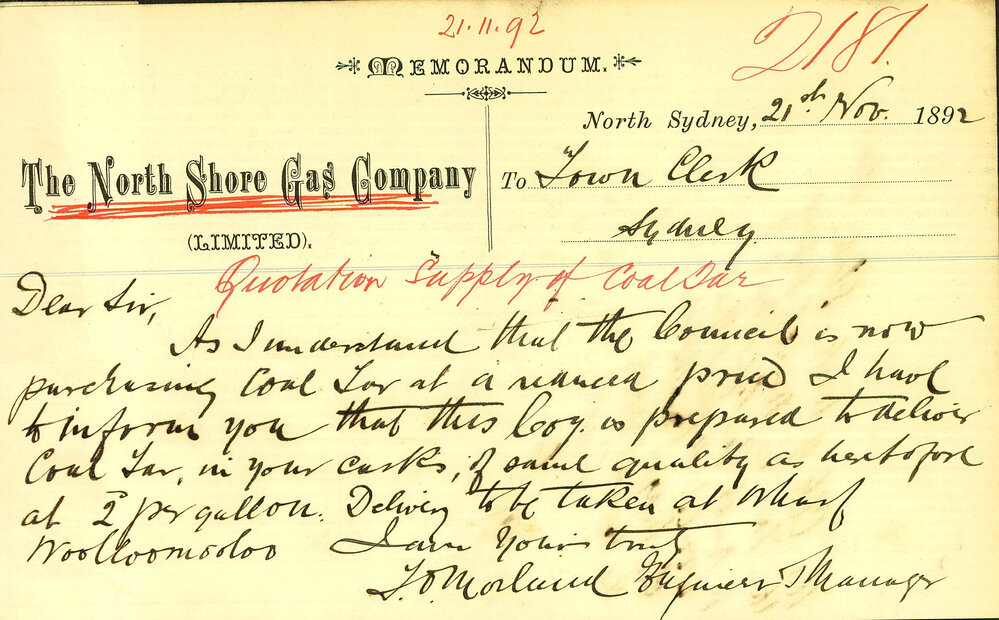 21.11.92
2181.
MEMORANDUM.
North Sydney, 21st Nov. 1892
The North Shore Gas Company
(LIMITED).
To Town Clerk
Sydney
Quotation Supply of Coal Tar
Dear Sir,
As I understand that the Council is now
purchasing Coal Tar at a reduced price I have
to inform you that this Coy. is prepared to deliver
Coal Tar, in your casks, of same quality as heretofore
at 2d per gallon. Delivery to be taken at Wharf
Woolloomooloo I am Yours truly
Morland Engineer & Manager